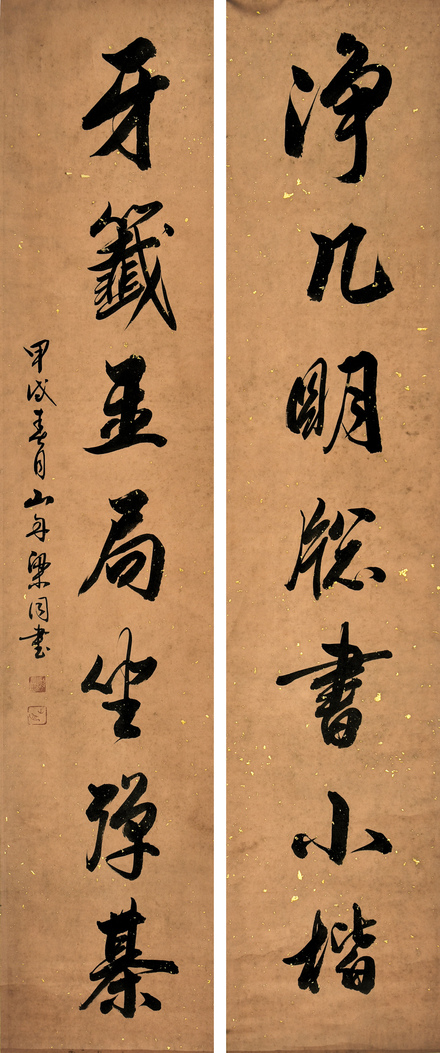 净几明牕書小楷
牙籤並局坐彈棊
甲戌春月山舟梁同書